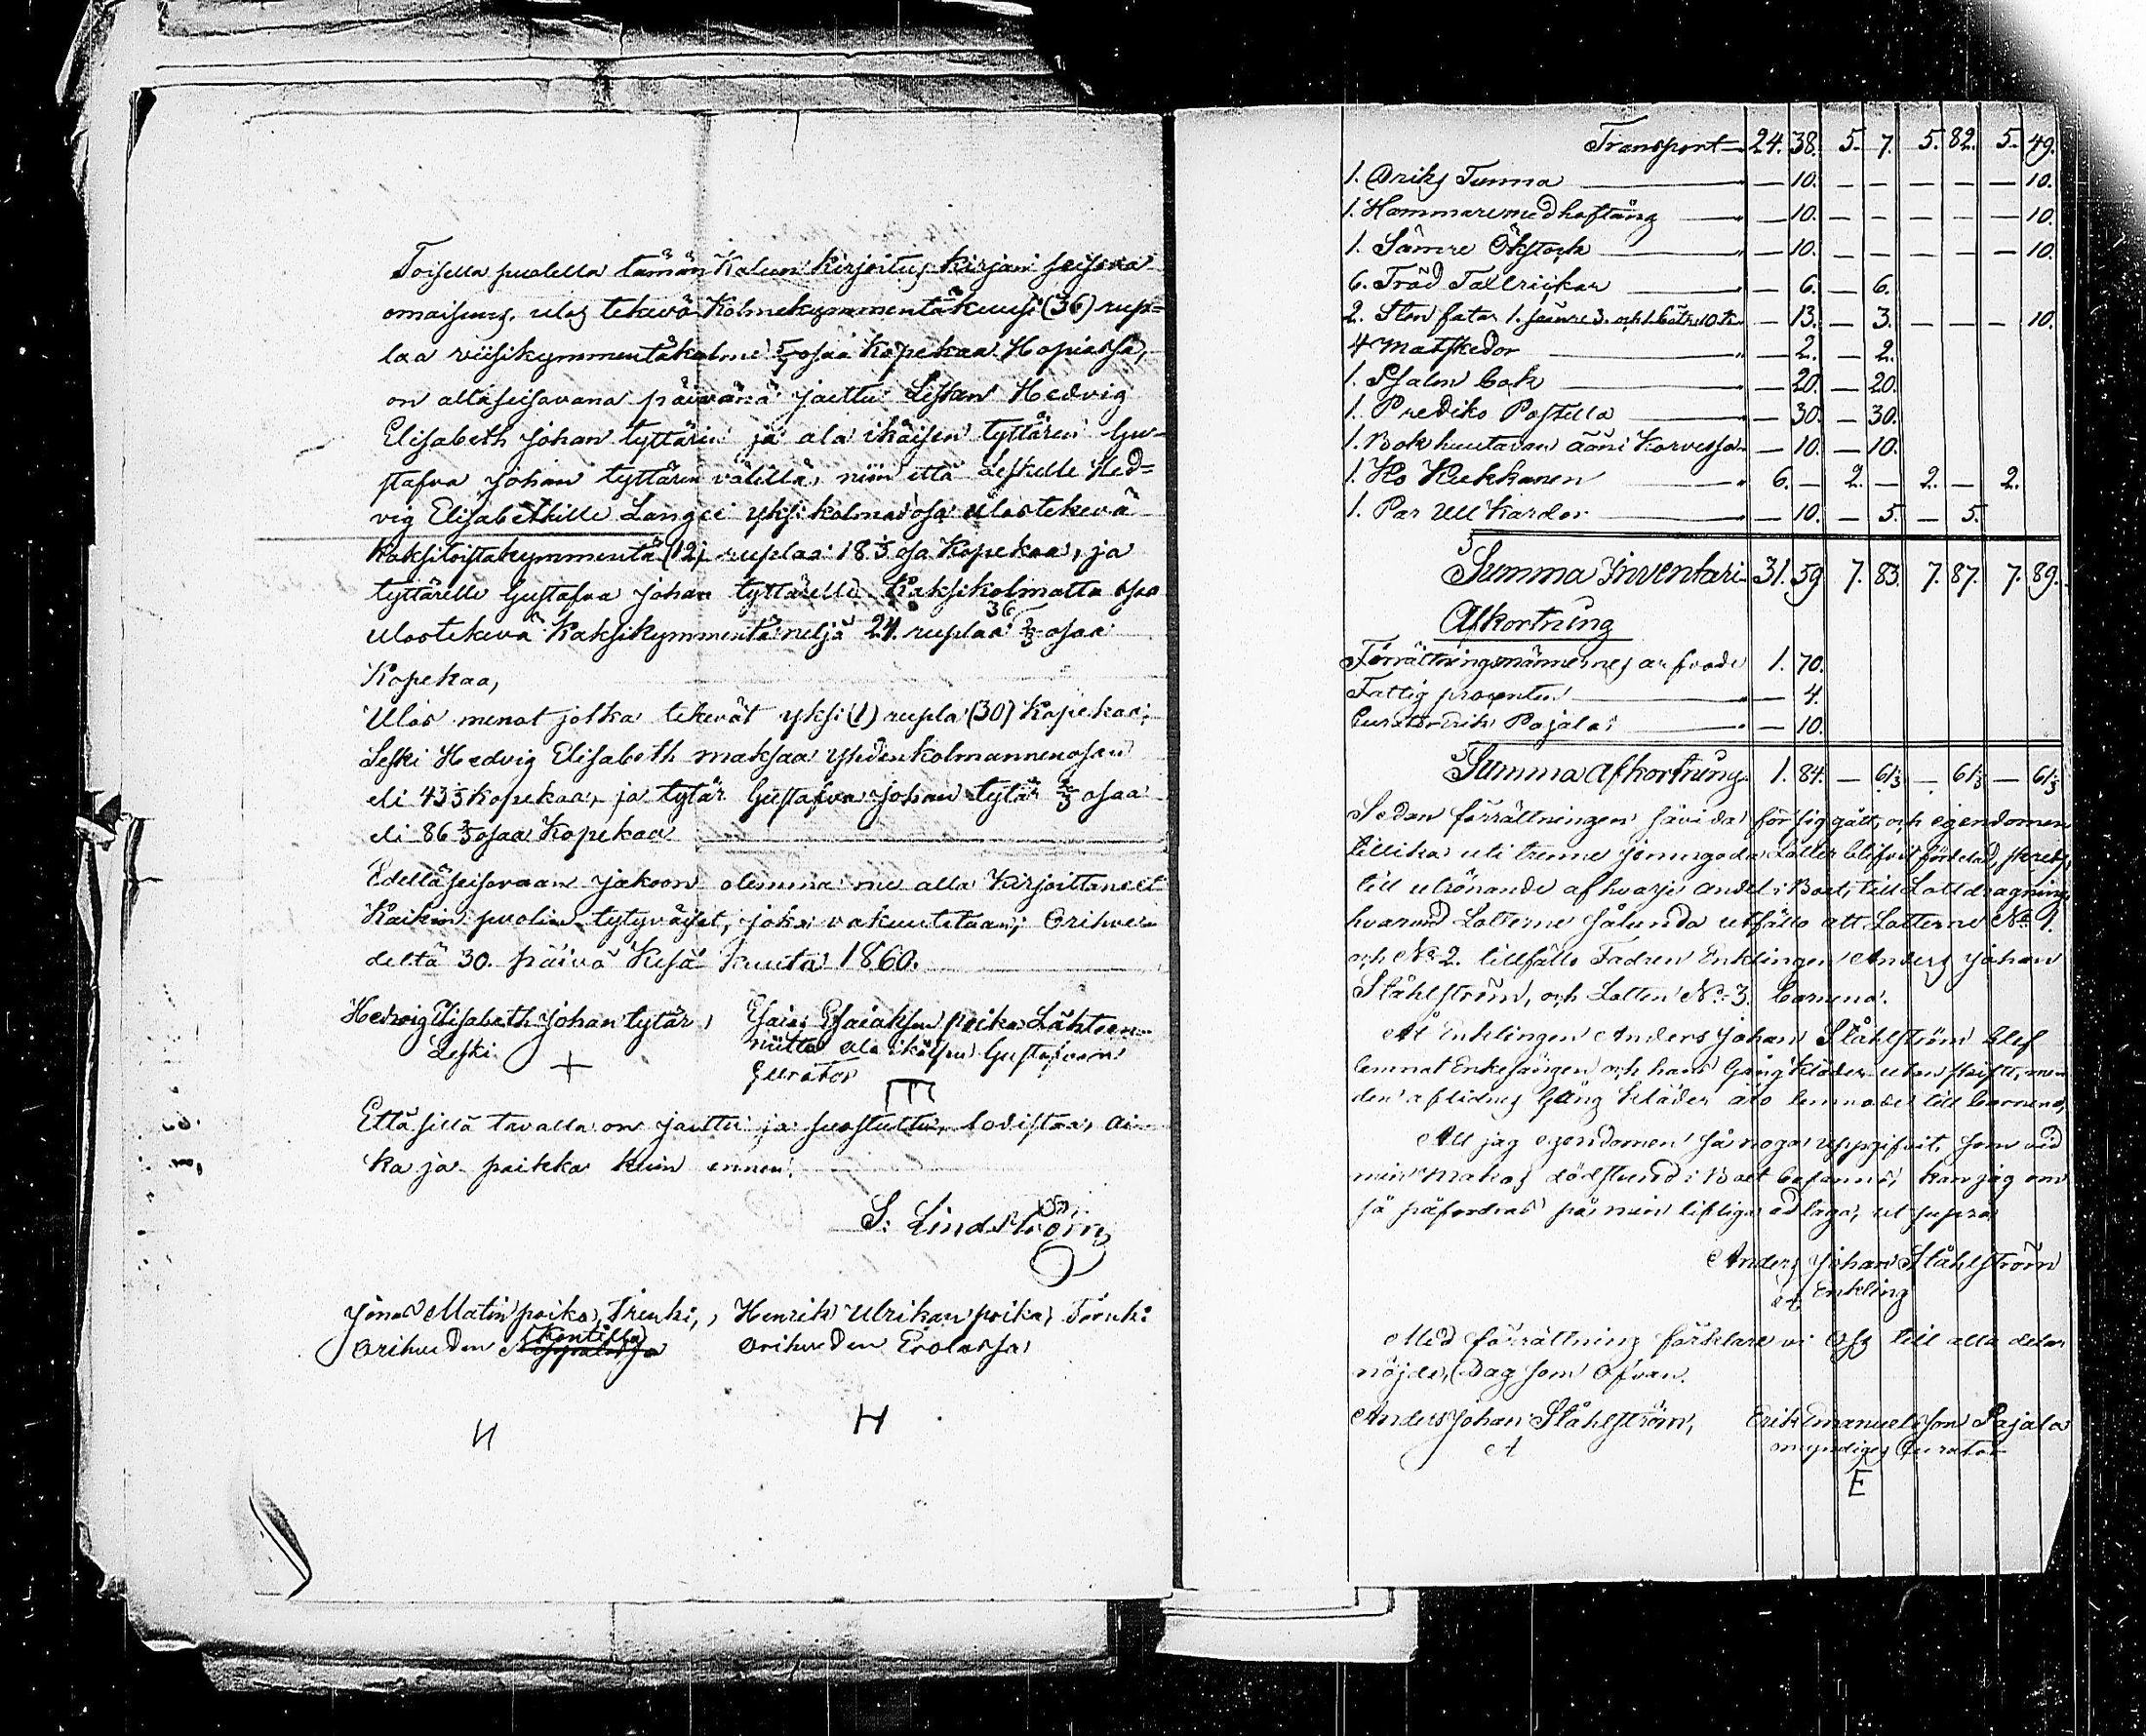 Toisella puolella tämän Kalun Kirjoitus Kirjan seisova
omaisuus, ulos tekevä Kolmekymmentäkuusi (36) rup=
laa viisikymmentäkolme 5/7 osaa Kopekaa Hopiassa,
on allaseisovana päivänä jaettu Lesken Hedvig
Elisabeth Johan tyttärin ja ala ikäisen tyttären Gu-
stafva Johan tyttären välillä, niin että Leskelle Hed=
vig Elisabethille Langei yksi kolmas osa ulostekevä
Kaksitoistakymmentä (12) ruplaa 18 1/3 osa Kopekaa, ja
tyttärelle Gustafva Johan tyttärelle Kaksikolmatta osa
ulostekevä Kaksikymmentä neljä 24 ruplaa 36 2/3 osaa
Kopekaa,
Ulos menot jotka tekevät yksi (1) rupla (30) Kopekaa;
Leski Hedvig Elisabeth maksaa yhdenkolmannenosan
eli 43 1/3 Kopekaa, ja tytär Gustafva Johan tytär 2/3 osaa
eli 86 2/3 osaa Kopekaa
Edelläseisovaan jakoon olemma me alla Kirjoittaneet
Kaikin puolin tytyväiset, joka vakuutetaan; Orihve-
deltä 30. päivä Kesä kuuta 1860.
Hedvig Elisabeth Johan tytär, Esaias Esaiaksen poika Lähteen-
Leski + niitta ala ikäisen Gustafvan
Curator
Että sillä tavalla on jaettu ja suostuttu, todistaa, ai-
ka ja paikka kuin ennen.
S: Lindström
Jonas Matin poika, , Henrik Ulrikan poika,
Orihveden Kontilla Orihveden Erolassa
H H
Transport 24. 38. 5. 7. 5. 82. 5. 49.
1. Driks Tunna — 10. — — — — — 10.
1. Hammare med hoftång — 10. — — — — — 10.
1. Sämre Ökstock — 10. — — — — — 10.
6. Träd Tallrickar — 6. — 6.
2. Sten fatar 1. sämre 3. och 1. bätre 10 k — 13. — 3. — — — 10.
4 Matskedor — 2. — 2.
1. Psalm bok — 20. — 20.
1. Prediko Postilla — 30. — 30.
1. Bok huutavan ääni Korvessa — 10. — 10.
1. Ko Kukkanen 6. — 2. — 2. — 2.
1. Par Ull Kardor — 10. — 5. — 5.
Summa Inventari 31. 59. 7. 83. 7. 87. 7. 89.
Afkortning
Förrättningsmännernes arfvode 1. 70.
Fattig procenten — 4.
Curator Erik Pajala: — 10.
Summa Afkortning 1. 84. — 61 1/3 — 61 1/3 — 61 1/3
Sedan förrättningen sävida för sig gått, och egendomen
tillika uti trenne jemngoda Lotter blifvit fördelad, skreds,
till utrönande af hvarje andel i Boet, till Lottdragning,
hvarvid Lotterne sålunda utföllo att Lotterne No 1.
och No 2. tillföllo Fadren Enklingen Anders Johan
Ståhlström, och Lotten No 3. barnena.
Åt Enklingen Anders Johan Ståhlström blef
lemnat Enkesängen och hans Gång kläder utan skifte, men
den aflidnes Gång kläder äro lemnade till barnena,
Att jag egendomen så noga uppgifvit, som vid
min Makas dödsstund i Boet befanns, kan jag om
så påfordras på min lifliga ed laga, ut supra
Anders Johan Ståhlström
Enkling
Med förrättning förklare vi Oss till alla delar
nöjde, Dag som ofvan.
Anders Johan Ståhlström, Erik Emanuelsson Pajala
A omyndiges Curator
E